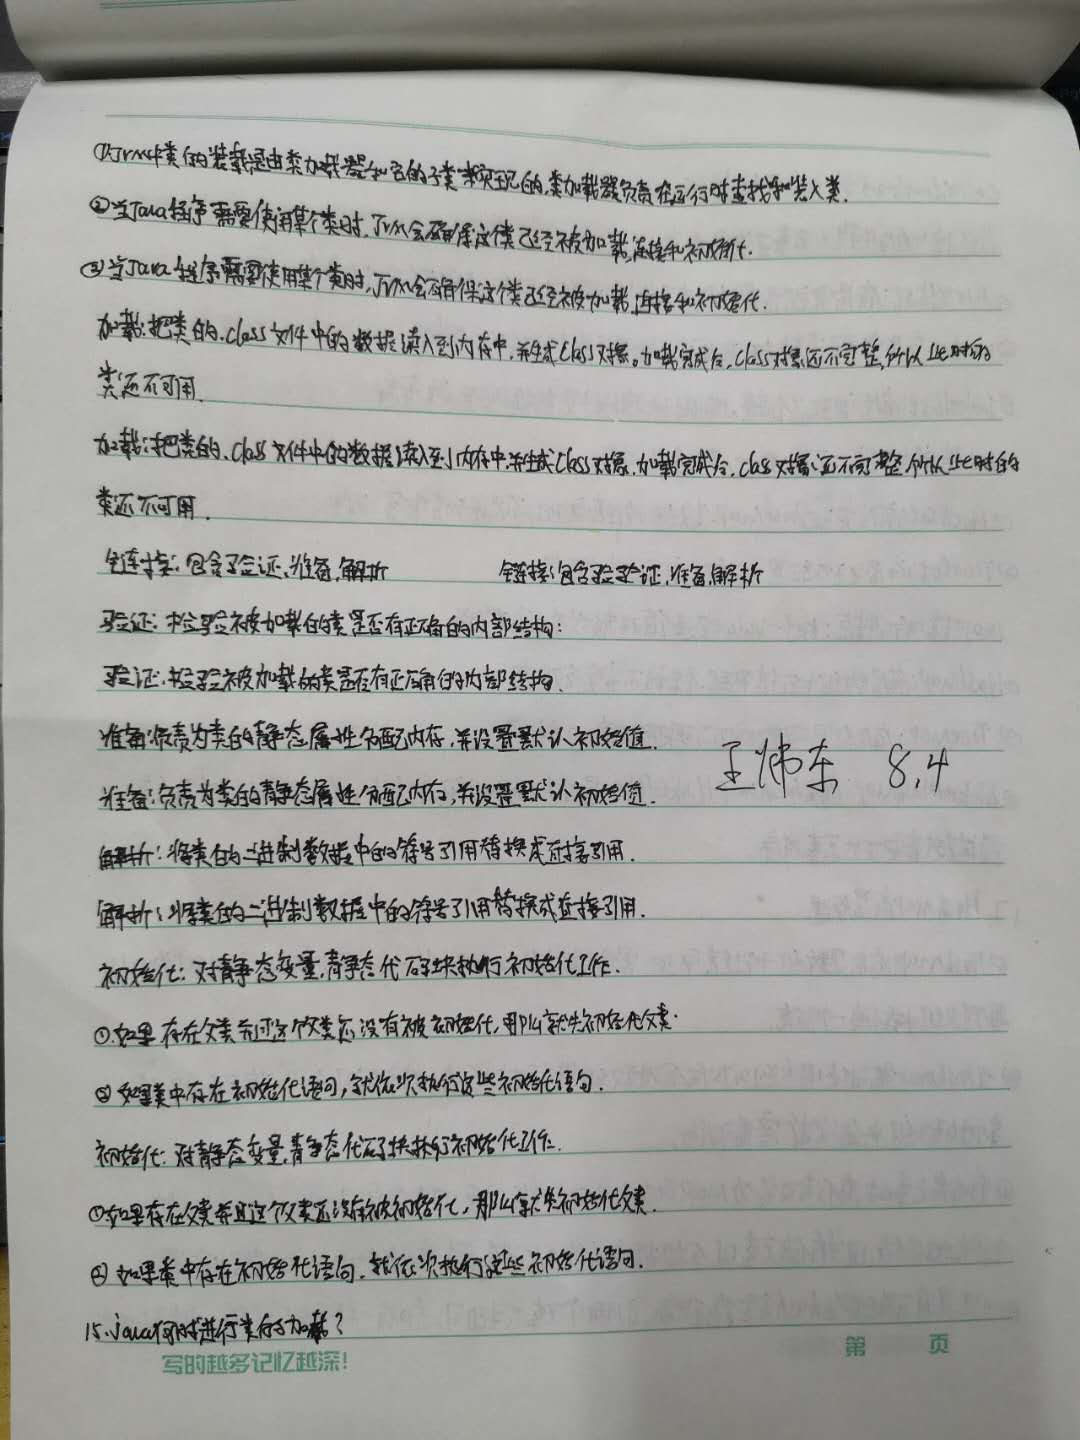 ①Jvm中类的装载是由类加载器和它的子类来实现的,类加载器负责在运行时查找和装入类.
②当Java程序需要使用某个类时,Jvm会确保这个类已经被加载,连接和初始化.
②当Java程序需要使用某个类时,Jvm会确保这个类已经被加载,连接和初始化.
加载:把类的.class文件中的数据读入到内存中,并生成Class对象。加载完成后,Class对象还不完整,所以此时的
类还不可用.
加载:把类的.class文件中的数据读入到内存中,并生成Class对象,加载完成后,class对象还不完整,所以此时的
类还不可用.
链接:包含验证,准备,解析 链接:包含验证,准备,解析
验证:检验被加载的类是否有正确的内部结构:
验证:检验被加载的类是否有正确的内部结构.
准备:负责为类的静态属性分配内存,并设置默认初始值.
王炜东 8.4
准备:负责为类的静态属性分配内存,并设置默认初始值.
解析:将类的二进制数据中的符号引用替换成直接引用.
解析:将类的二进制数据中的符号引用替换成直接引用.
初始化:对静态变量,静态代码块执行初始化工作.
①.如果存在父类并且这个父类还没有被初始化,那么就先初始化父类.
②如果类中存在初始化语句,就依次执行这些初始化语句.
初始化:对静态变量,静态代码块执行初始化工作.
①如果存在父类并且这个父类还没有被初始化,那么就先初始化父类.
②如果类中存在初始化语句,就依次执行这些初始化语句.
15.java何时进行类的加载?
写的越多记忆越深!
第 页